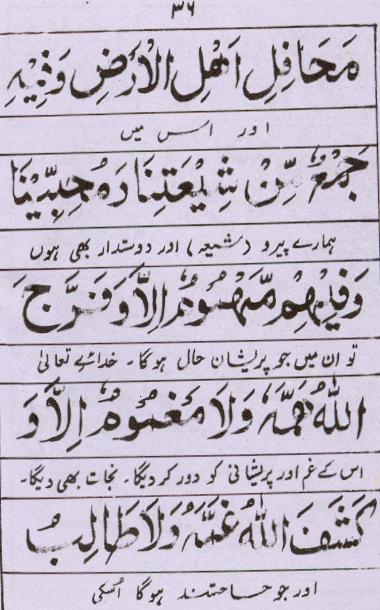 ٣٦
مَحَافِلِ اَهْلِ الْاَرْضِ وَفِيْهِ
اور اس میں
جَمْعٌ مِّنْ شِيْعَتِنَا وَمُحِبِّيْنَا
ہمارے پیرو (شیعہ) اور دوستدار بھی ہوں
وَفِيْهِمْ مَّهْمُوْمٌ اِلَّا وَفَرَّجَ
تو ان میں جو پریشان حال ہوگا۔ خدائے تعالیٰ
اللّٰهُ هَمَّهٗ وَلَا مَغْمُوْمٌ اِلَّا وَ
اس کے غم اور پریشانی کو دور کردیگا۔ نجات بھی دیگا۔
كَشَفَ اللّٰهُ غَمَّهٗ وَلَا طَالِبُ
اور جو حاجتمند ہوگا اُسکی